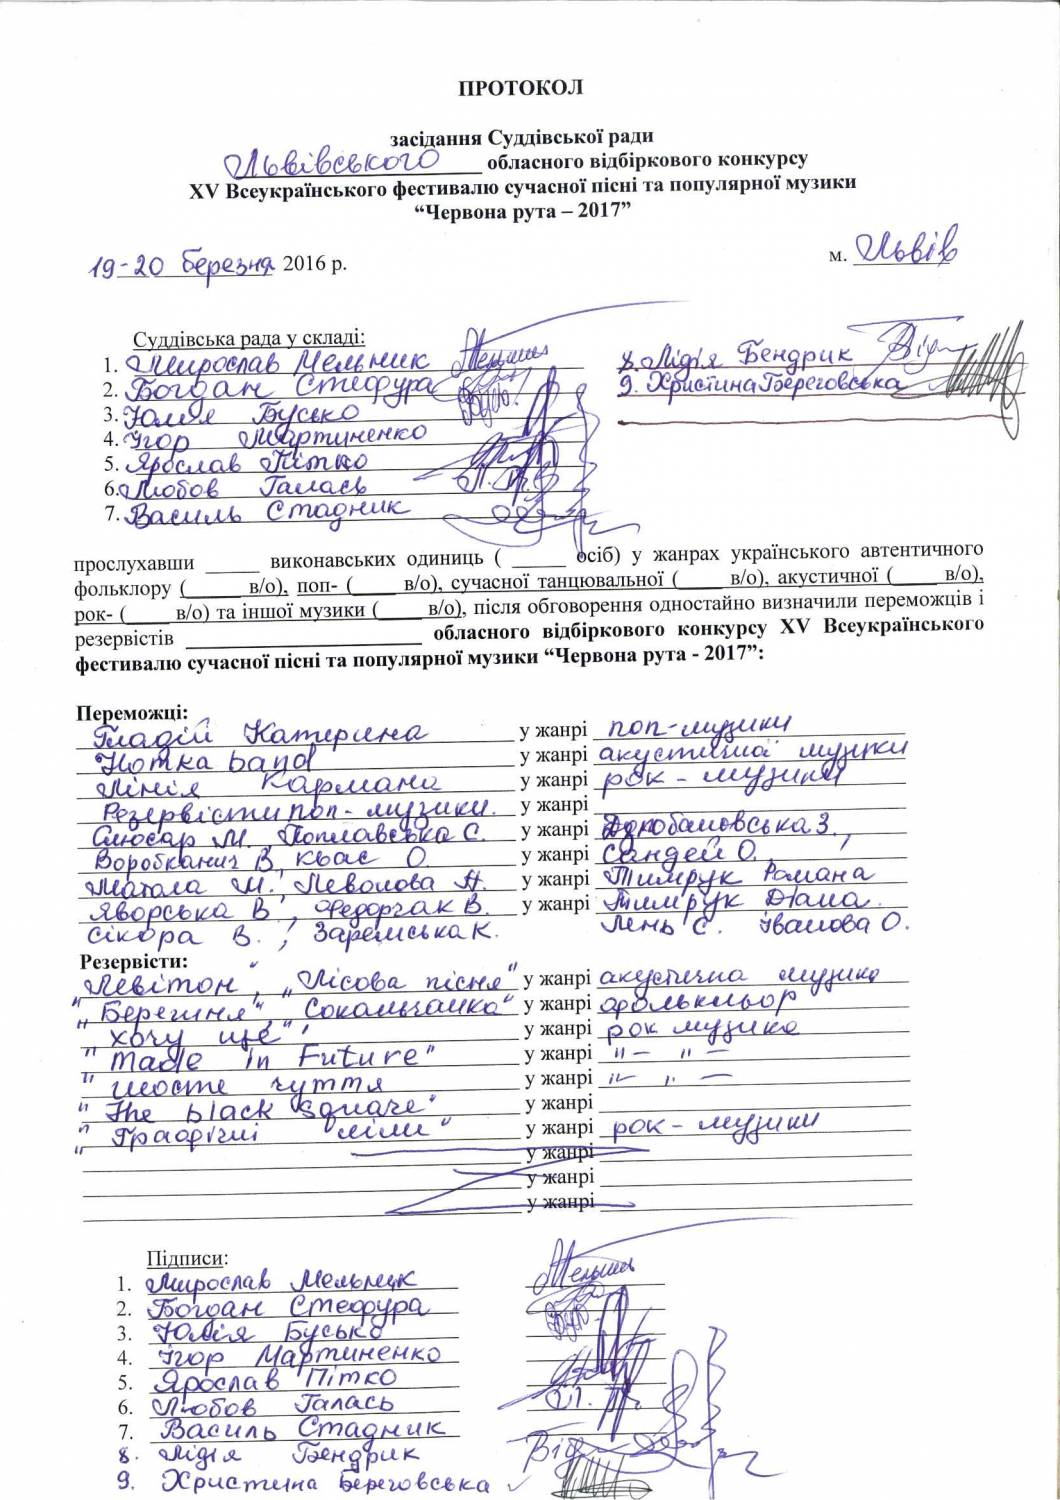 ПРОТОКОЛ
засідання Суддівської ради
Львівського обласного відбіркового конкурсу
XV Всеукраїнського фестивалю сучасної пісні та популярної музики
“Червона рута – 2017”
19-20 березня 2016 р.
м. Львів
Суддівська рада у складі:
1. Мирослав Мельник
2. Богдан Стефура
3. Юлія Бусько
4. Ігор Мартиненко
5. Ярослав Пітко
6. Любов Галась
7. Василь Стадник
8. Лідія Бендрик
9. Христина Береговська
прослухавши _____ виконавських одиниць ( _____ осіб) у жанрах українського автентичного
фольклору (_____ в/о), поп- (____ в/о), сучасної танцювальної (____ в/о), акустичної (____ в/о),
рок- (____ в/о) та іншої музики (____ в/о), після обговорення одностайно визначили переможців і
резервістів ____________ обласного відбіркового конкурсу XV Всеукраїнського
фестивалю сучасної пісні та популярної музики “Червона рута - 2017”:
Переможці:
Гладій Катерина у жанрі поп-музики
Нотка band у жанрі акустичної музики
Лінія Кармана у жанрі рок - музики
Резервісти поп - музики. у жанрі
Слюсар М. Поплавська С. у жанрі З.
Воробканич В, Квас О. у жанрі Сандей О.,
М., А. у жанрі Тимрук Романа
Яворська В., Федорчак В. у жанрі Тимрук Діана.
Сікора В.; Заремська К. Лень С. Іванова О.
Резервісти:
Левітон", „Лісова пісня" у жанрі акустична музика
„Берегиня", Сокальчанка" у жанрі фолькльор
" хочу ще", у жанрі рок музика
" Made in Future" у жанрі " – " –
" шосте чуття у жанрі " " –
" The black square" у жанрі
" Графічні у жанрі рок - музики
у жанрі
у жанрі
у жанрі
Підписи:
1. Мирослав Мельник
2. Богдан Стефура
3. Юлія Бусько
4. Ігор Мартиненко
5. Ярослав Пітко
6. Любов Галась
7. Василь Стадник
8. Лідія Бендрик
9. Христина Береговська